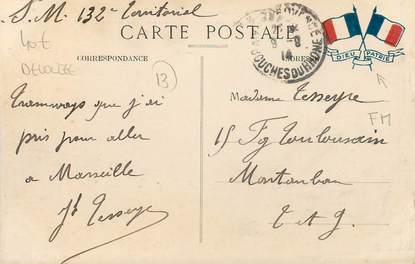 S. M. 132e Territorial
CARTE POSTALE
40 E
DELUZE
CORRESPONDANCE
13
14
BOUCHES DU RHONE
DIEU PATRIE
FM
Tramways que j'ai
pris pour aller
a Marseille
Jh Tesseyre
Madame Tesseyre
15 Fg Toulousain
Montauban
T et G.